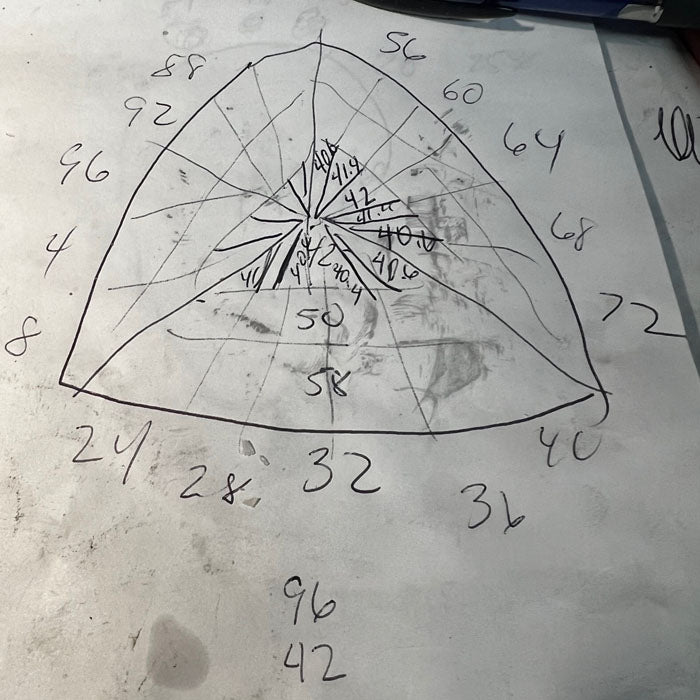 56
88
60
92
64
96
40.6
41.4
42
41.4
68
4
40.6
42
40.6
41
40.4
72
8
50
58
24
28
32
36
40
96
42